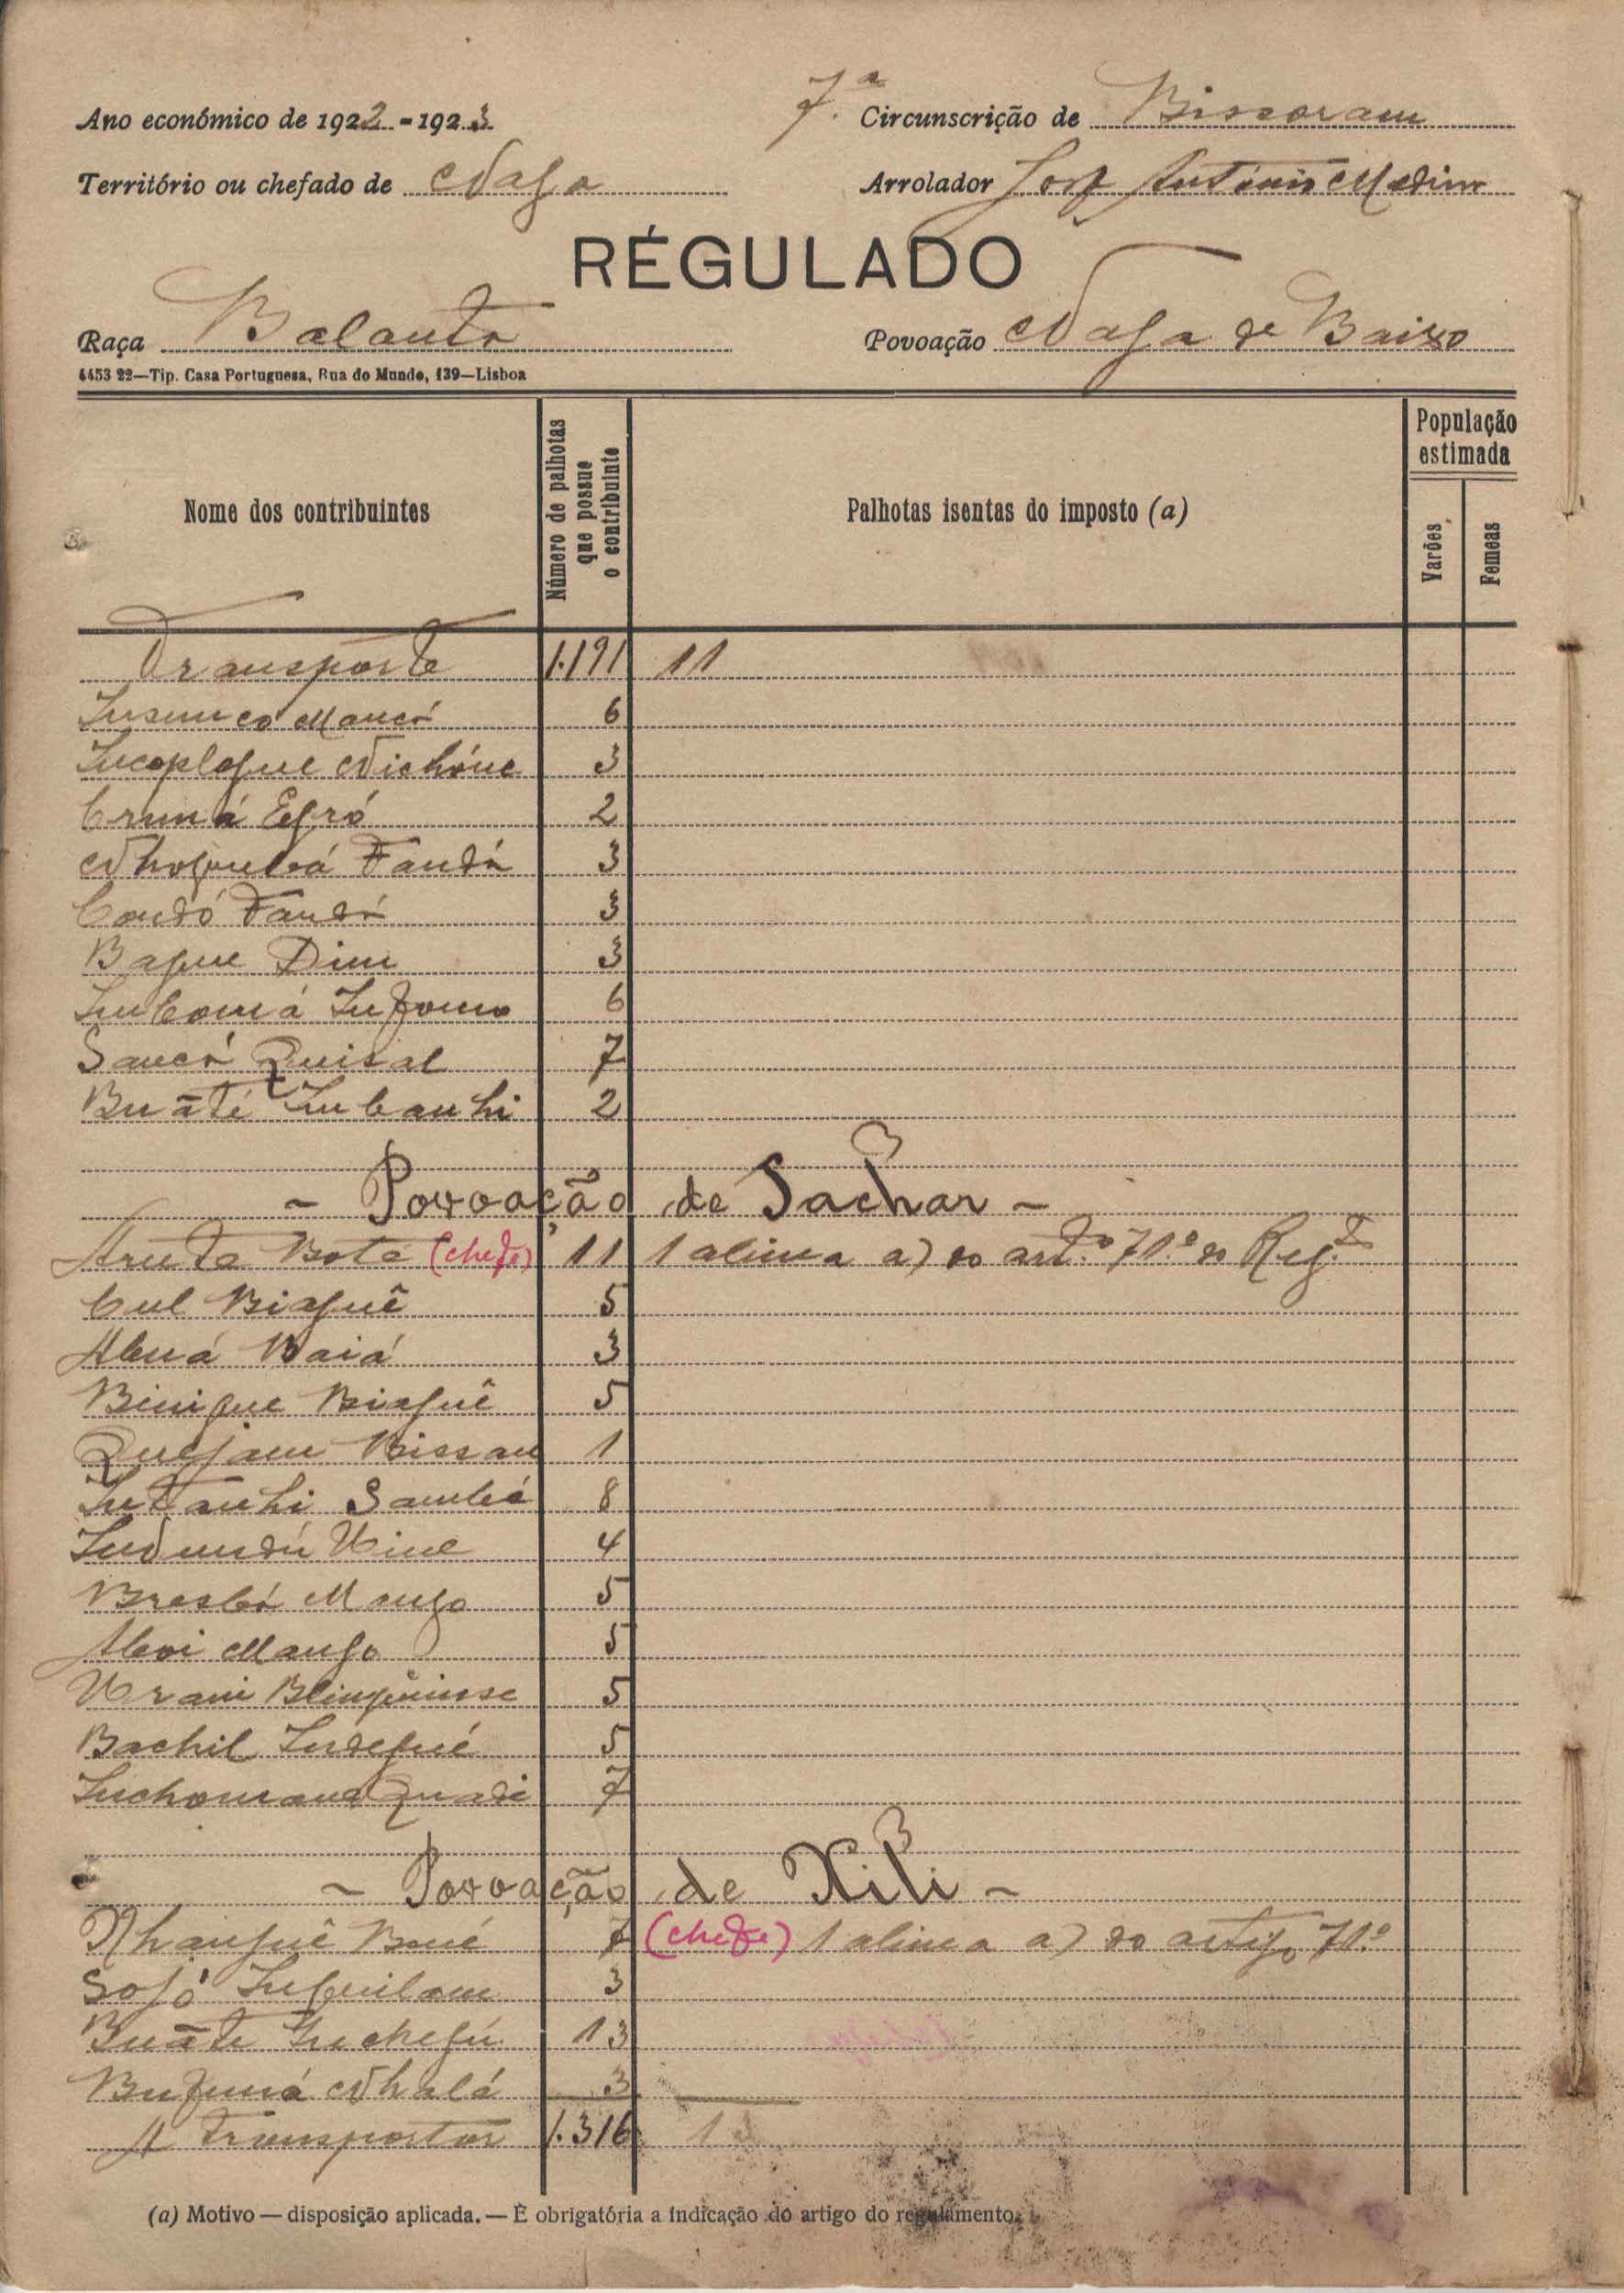 Ano económico de 1922-1923
7.ª Circunscrição de Bissoram
Território ou chefado de Naga
Arrolador José António Medina
RÉGULADO
Raça Balanta
Povoação Naga de Baixo
4453 22—Tip. Casa Portuguesa, Rua do Mundo, 139—Lisboa
Nome dos contribuintes
Número de palhotas que possue o contribuinte
Palhotas isentas do imposto (a)
População estimada
Varões
Femeas
Transporte 1.191 11
Mancá 6
3
Egró 2
Fandá 3
Condó Fandá 3
Bague Dim 3
6
Sancá Quisal 7
Buāté 2
- Povoação de Sachar -
3
Bota (chefe) 11 1 alinea a) do art.º 71.º do Reg.to
Cul Biaguê 5
Abná Baiá 3
Binique Biaguê 5
Quejam Bissau 1
Intanhi Sambá 8
4
Mango 5
Aboi Mango 5
5
Bachil Indegué 5
7
- Povoação de Xili -
3
Nhanguê 7 (chefe) 1 alinea a) do artigo 71.º
Sojó 3
Buāte 13
Nhalá 3
A transportar 1.316 13
(a) Motivo — disposição aplicada. — É obrigatória a indicação do artigo do regulamento.